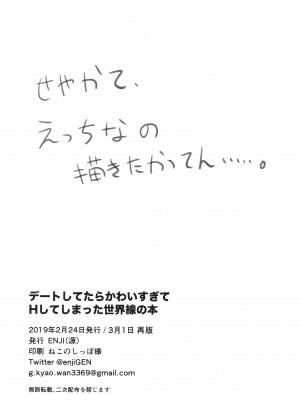 せやかて、
えっちなの
描きたかってん……。
デートしてたらかわいすぎて
Hしてしまった世界線の本
2019年2月24日発行 / 3月1日 再版
発行 ENJI(源)
印刷 ねこのしっぽ様
Twitter @enjiGEN
g.kyao.wan3369@gmail.com
無断転載、二次配布を禁じます